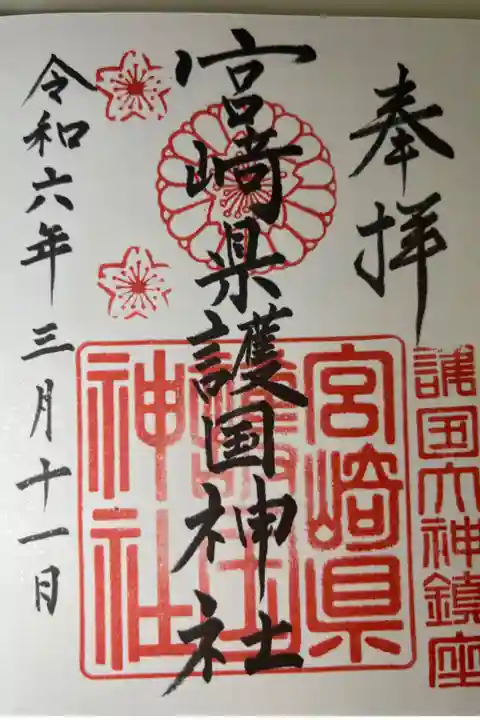 奉拝
護国大神鎮座
宮崎県護国神社
宮崎県
護国
神社
令和六年三月十一日